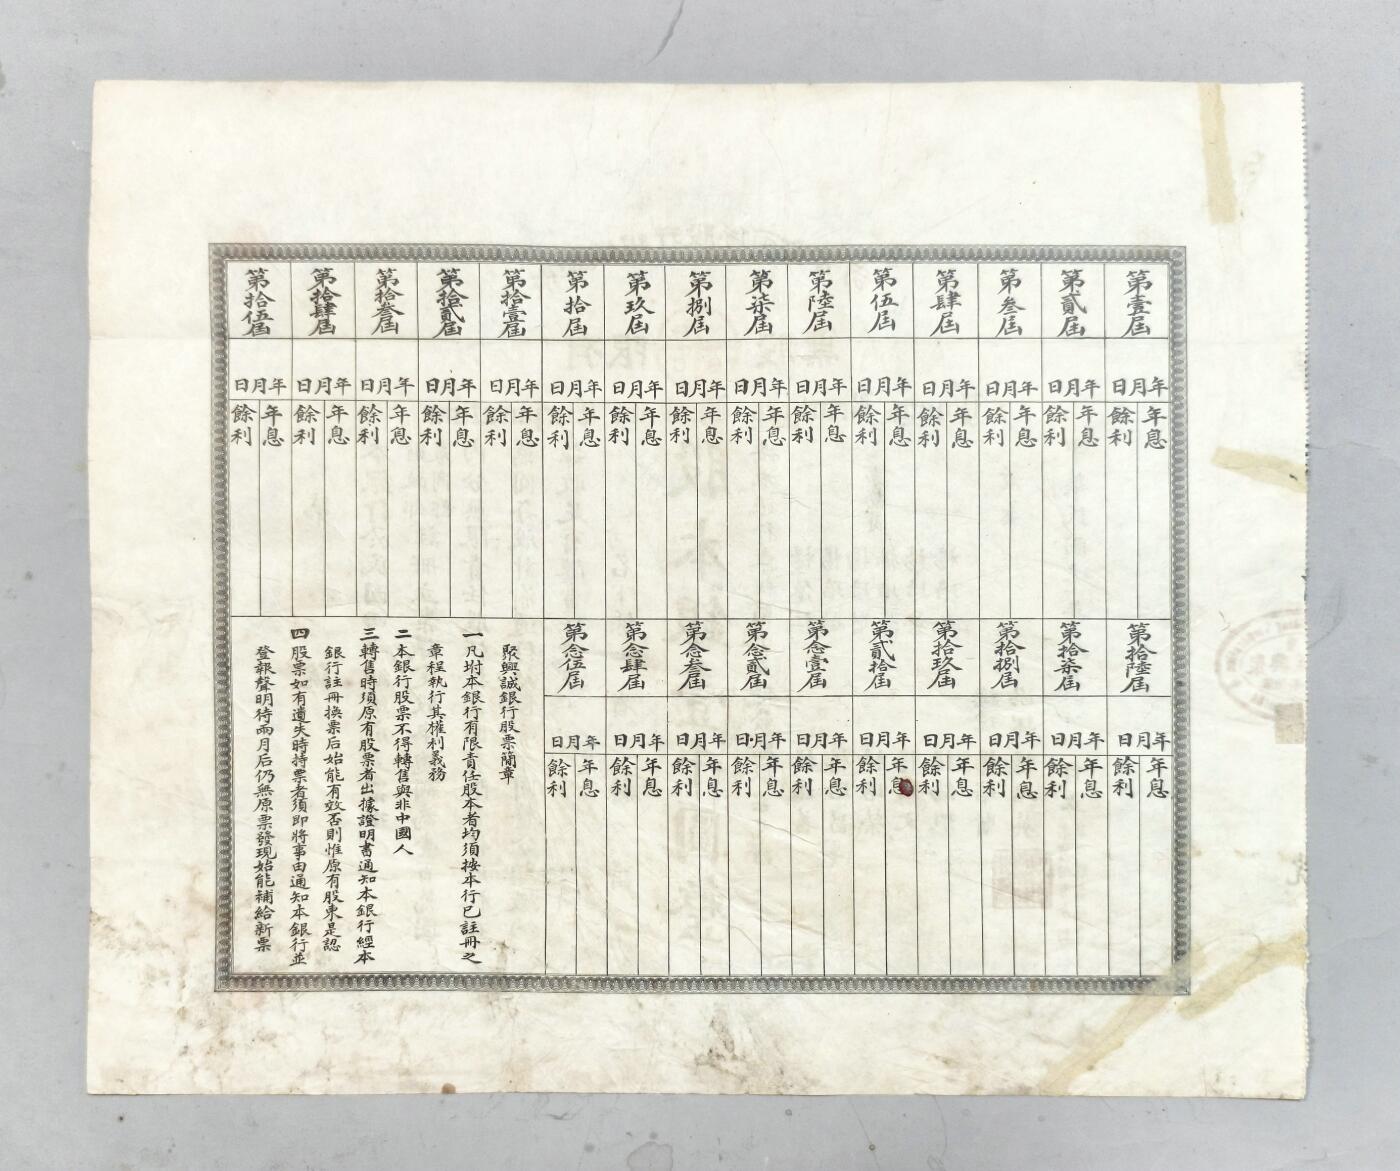 第壹屆
年月日
年息
餘利
第貳屆
年月日
年息
餘利
第叁屆
年月日
年息
餘利
第肆屆
年月日
年息
餘利
第伍屆
年月日
年息
餘利
第陸屆
年月日
年息
餘利
第柒屆
年月日
年息
餘利
第捌屆
年月日
年息
餘利
第玖屆
年月日
年息
餘利
第拾屆
年月日
年息
餘利
第拾壹屆
年月日
年息
餘利
第拾貳屆
年月日
年息
餘利
第拾叁屆
年月日
年息
餘利
第拾肆屆
年月日
年息
餘利
第拾伍屆
年月日
年息
餘利
第拾陸屆
年月日
年息
餘利
第拾柒屆
年月日
年息
餘利
第拾捌屆
年月日
年息
餘利
第拾玖屆
年月日
年息
餘利
第貳拾屆
年月日
年息
餘利
第念壹屆
年月日
年息
餘利
第念貳屆
年月日
年息
餘利
第念叁屆
年月日
年息
餘利
第念肆屆
年月日
年息
餘利
第念伍屆
年月日
年息
餘利
聚興誠銀行股票簡章
一凡坿本銀行有限責任股本者均須按本行已註冊之
章程執行其權利義務
二本銀行股票不得轉售與非中國人
三轉售時須原有股票者出據證明書通知本銀行經本
銀行註冊換票后始能有效否則惟原有股東是認
四股票如有遺失時持票者須即將事由通知本銀行並
登報聲明待兩月后仍無原票發現始能補給新票